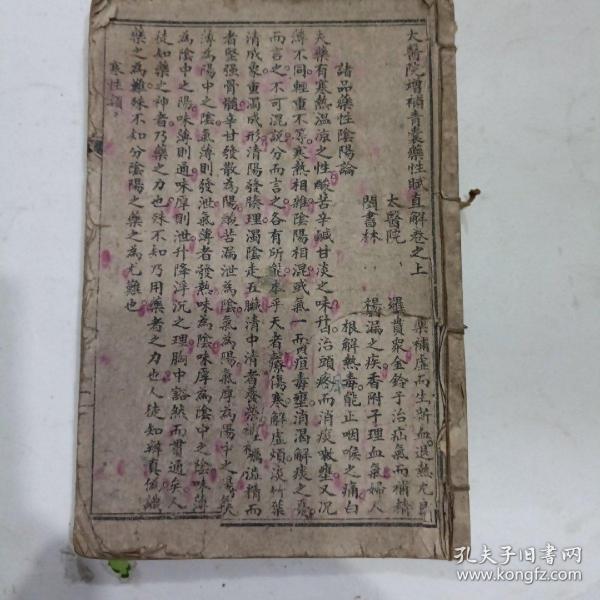 太醫院增補青囊藥性賦直解卷之上
太醫院
閩書林
諸品藥性陰陽論
夫藥有寒熱溫涼之性酸苦辛鹹甘淡之味升
薄不同輕重不等寒熱相雜陰陽相混或氣一而
而言之不可混說分而言之各有所能本乎天者
清成象重濁成形清陽發腠理濁陰走五臟清中清者
者堅强骨髓辛甘發散為陽酸苦漏泄為陰氣為陽氣厚為陽中之陽
薄為陽中之陰氣薄則發泄氣薄者發熱味為陰味厚為陰中之陰味薄
為陰中之陽味薄則通味厚則泄升降浮沉之理胸中豁然而貫通矣人
徒知藥之神者乃藥之力也殊不知乃用藥者之力也人徒知辨真偽識
藥之為難殊不知分陰陽之藥之為尤難也
寒性類
藥補虛而生
羅
楊
貫衆金鈴子治疝氣而補精
漏之疾香附子理血氣婦人
根解熱毒能正咽喉之痛白
治頭疼而消痰嗽壅又沉
疽毒壅消渴解痰之
療傷寒解虛煩淡竹葉